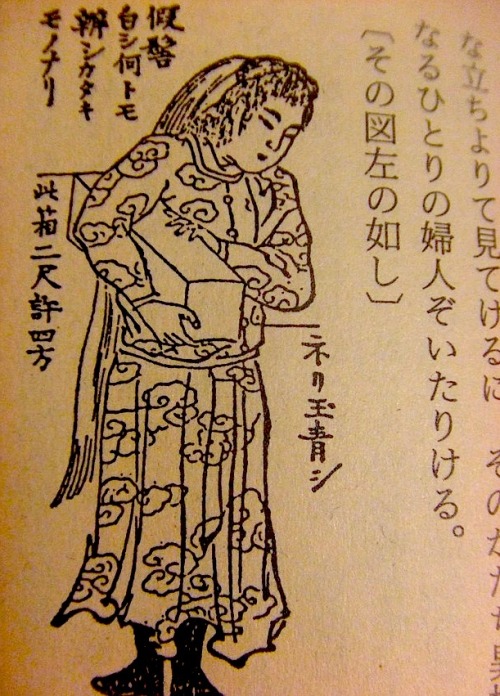 な立ちよりて見てけるに
なるひとりの婦人ぞいたりける。
〔その図左の如し〕
假髻
白シ何トモ
辨シカタキ
モノナリ
ネリ玉青シ
此箱二尺許四方